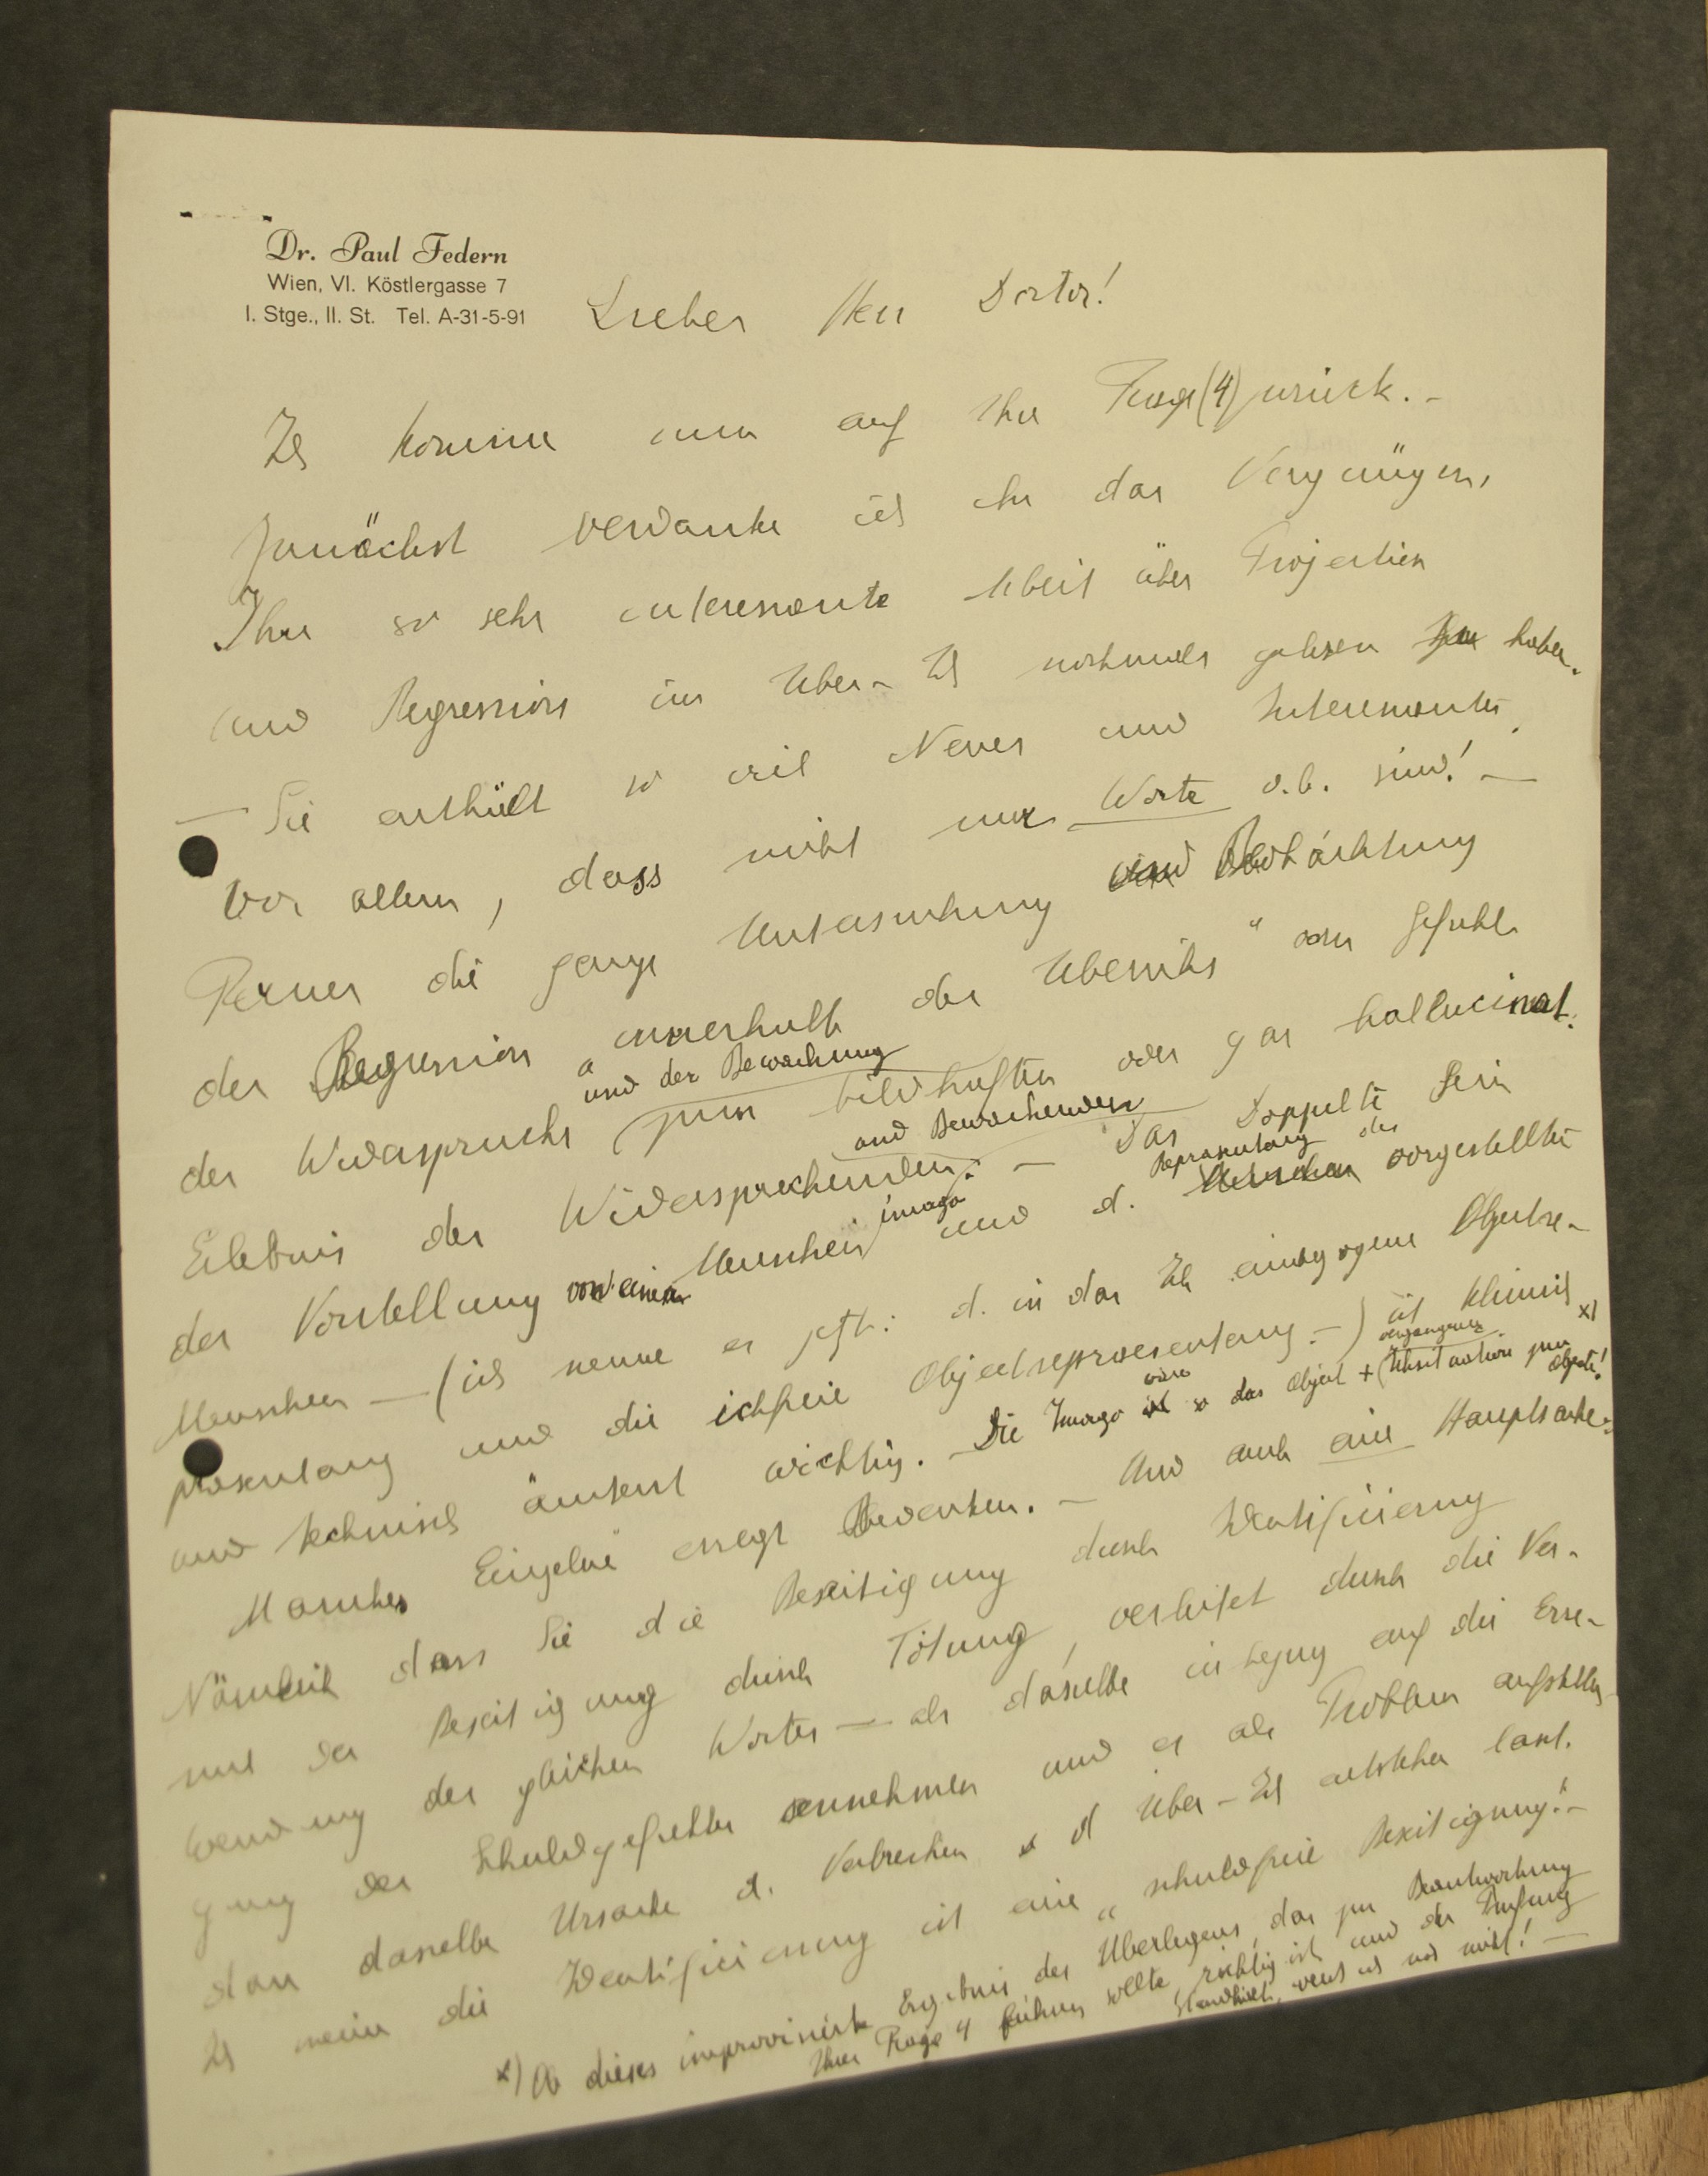 Dr. Paul Federn
Wien, VI. Köstlergasse 7
I. Stge., II. St. Tel. A-31-5-91
Lieber Herr Doctor!
Ich komme nun auf Ihre Frage (4) zurück. –
Zunächst verdanke ich ihr das Vergnügen,
Ihre so sehr interessante Arbeit über Projection
und Regression im Über-Ich nochmals gelesen haben.
— Sie enthält so viel Neues und Interessantes
Vor allem, dass nicht nur Worte v.b. sind! —
Ferner die ganze Untersuchung Beobachtung
der Regression innerhalb des Überichs" vom Gefühl
und der Bewachung
des Widerspruchs zum bildhaften oder gar hallucinat.
und Bewachenden
Erlebnis des Widersprechenden. — Das Doppelte Sein
imago
Repräsentanz des
der Vorstellung von einem Menschen und d. vorgestellte
Menschen — (ich nenne es jetzt: d. in das Ich einbezogene Objectre-
präsentanz und die ichfreie Objectrepraesentanz. –) ist klinisch x)
und technisch äusserst wichtig. – Die Imago wäre so das Object + Ichsituation zum Objecte!
Manches Einzelne erregt Bedenken. – Und auch eine Hauptsache:
Nämlich dass Sie die Beseitigung durch Identifizierung
mit der Beseitigung durch Tötung, verleitet durch die Ver-
wendung des gleichen Wortes — als dasselbe in bezug auf die Erre-
gung des Schuldgefühles annehmen und es als Problem aufstellen
dass dasselbe Ursache d. Verbrechen u d Über-Ich entstehen lässt.
Ich meine die Identifizierung ist eine „schuldfreie Beseitigung". –
x) Ob dieses improvisierte Ergebnis des Überlegens, das zur Beantwortung
Ihrer Frage 4 führen sollte, richtig ist und der Prüfung
standhielt, weiss ich noch nicht! —